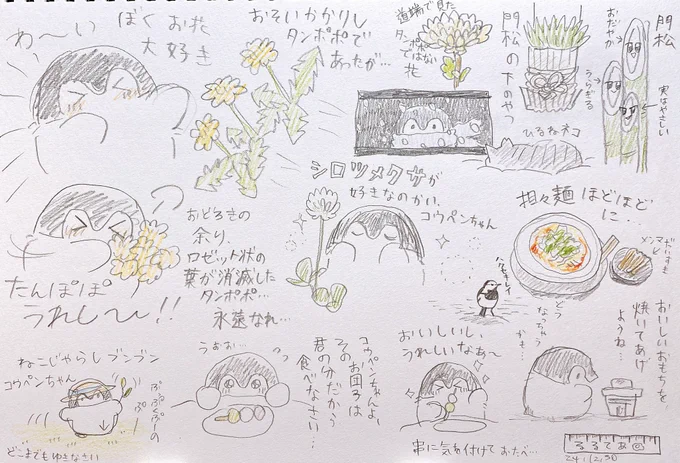 わ〜い
ぼくお花
大好き
おそいかかりし
タンポポで
あったが…
道端で見た
タンポポ
ではない
花
門松の下のやつ
うらぎる
おだやか
門松
実はやさしい
ひるねネコ
シロツメクサが
好きなのかい、
コウペンちゃん
たんぽぽ
うれし〜い!!
おどろきの
余り、
ロゼット状の
葉が消滅した
タンポポ…
永遠なれ…
坦々麺ほどほど
に…
メンマ
ハクセキレイ
どう
なっちゃう
かも…
おいしいおもちを
焼いてあげ
ようね…
ねこじゃらしブンブン
コウペンちゃん
どこまでもゆきなさい
うぉぉ…
コウペンちゃんよ、
そのお団子は
君の分だから
食べなさい…
おいしいし、
うれしいなあ〜
串に気を付けておたべ…
るるてあ
24.12.30